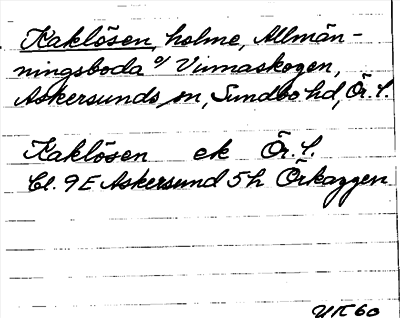 Kaklösen, holme, Allmän-
ningsboda o/ Vinnaskogen,
Askersunds sn, Sundbo hd, Ör. l.
Kaklösen ek Ör. l.
Bl. 9E Askersund 5h Örkaggen
60